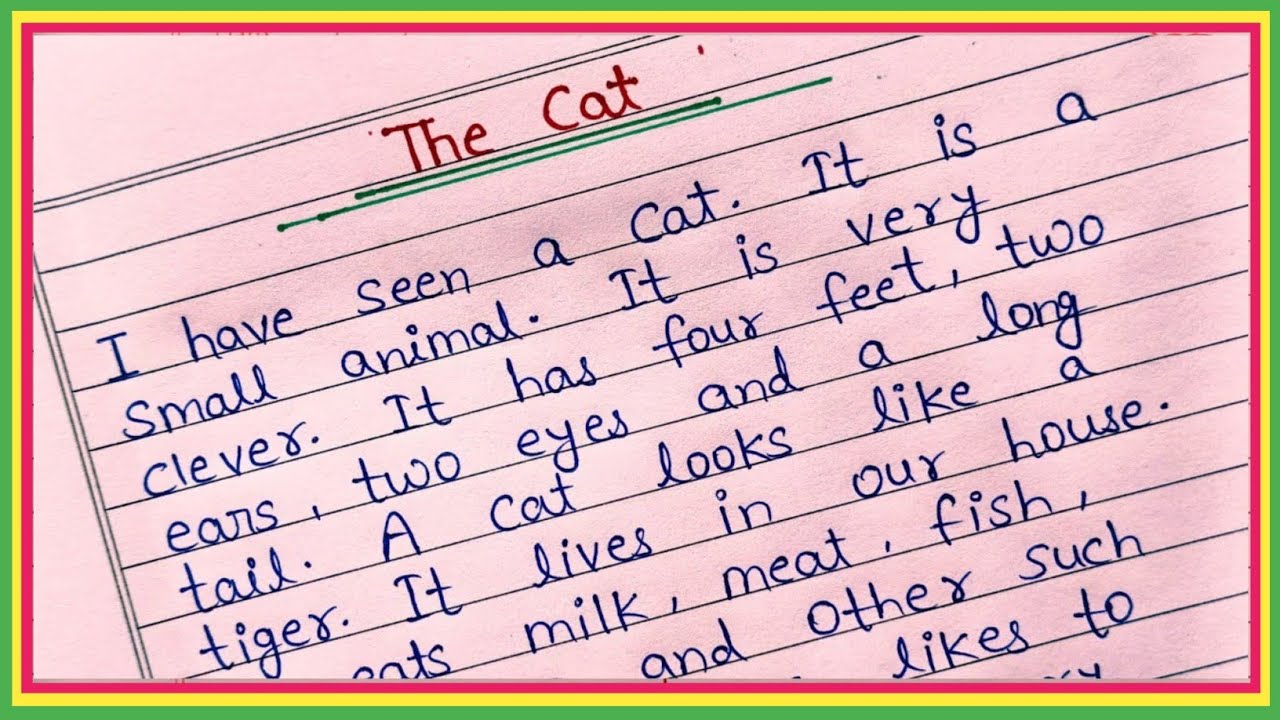 The Cat
I have seen a cat. It is a
small animal. It is very
clever. It has four feet, two
ears, two eyes and a long
tail. A cat looks like a
tiger. It lives in our house.
eats milk, meat, fish,
and other such
likes to